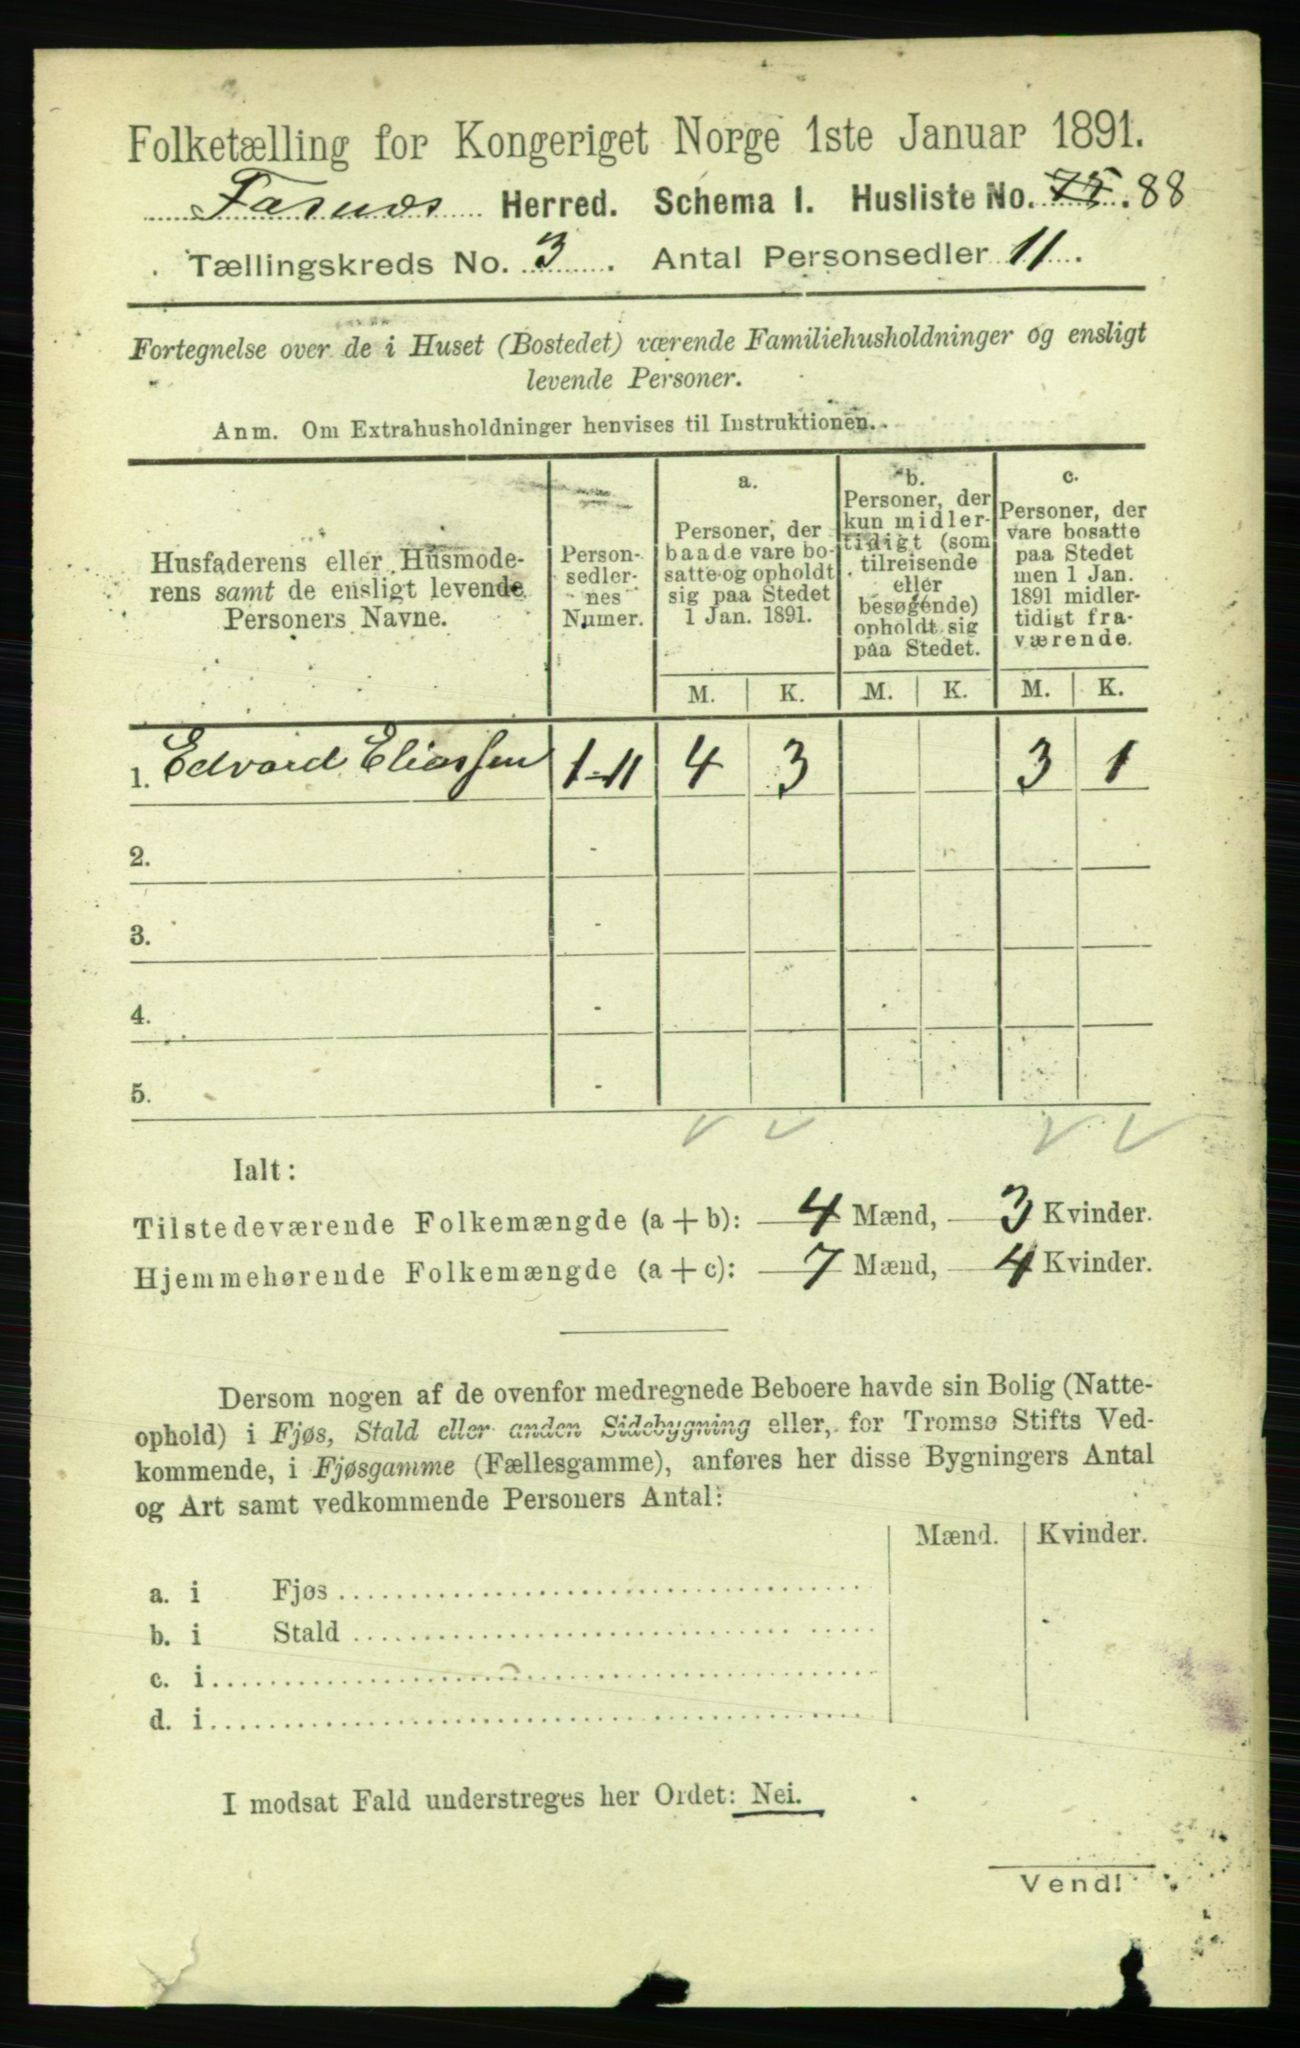 Folketælling for Kongeriget Norge 1ste Januar 1891.
Fosnæs Herred. Schema I. Husliste No. 75. 88
Tællingskreds No. 3. Antal Personsedler 11.
Fortegnelse over de i Huset (Bostedet) værende Familiehusholdninger og ensligt
levende Personer.
Anm. Om Extrahusholdninger henvises til Instruktionen.
Husfaderens eller Husmode-
rens samt de ensligt levende
Personers Navne.
Person-
sedler-
nes
Numer.
a.
Personer, der
baade vare bo-
satte og opholdt
sig paa Stedet
1 Jan. 1891.
b.
Personer, der
kun midler-
tidigt (som
tilreisende
eller
besøgende)
opholdt sig
paa Stedet.
c.
Personer, der
vare bosatte
paa Stedet
men 1 Jan.
1891 midler-
tidigt fra-
værende.
M. K. M. K. M. K.
1. Edvard Eliassen 1-11 4 3 3 1
2. -
3. -
4. -
5. -
Ialt:
Tilstedeværende Folkemængde (a + b): 4 Mænd, 3 Kvinder.
Hjemmehørende Folkemængde (a + c): 7 Mænd, 4 Kvinder.
Dersom nogen af de ovenfor medregnede Beboere havde sin Bolig (Natte-
ophold) i Fjøs, Stald eller anden Sidebygning eller, for Tromsø Stifts Ved-
kommende, i Fjøsgamme (Fællesgamme), anføres her disse Bygningers Antal
og Art samt vedkommende Personers Antal:
Mænd. Kvinder.
a. i Fjøs
b. i Stald
c. i
d. i
I modsat Fald understreges her Ordet: Nei.
Vend!